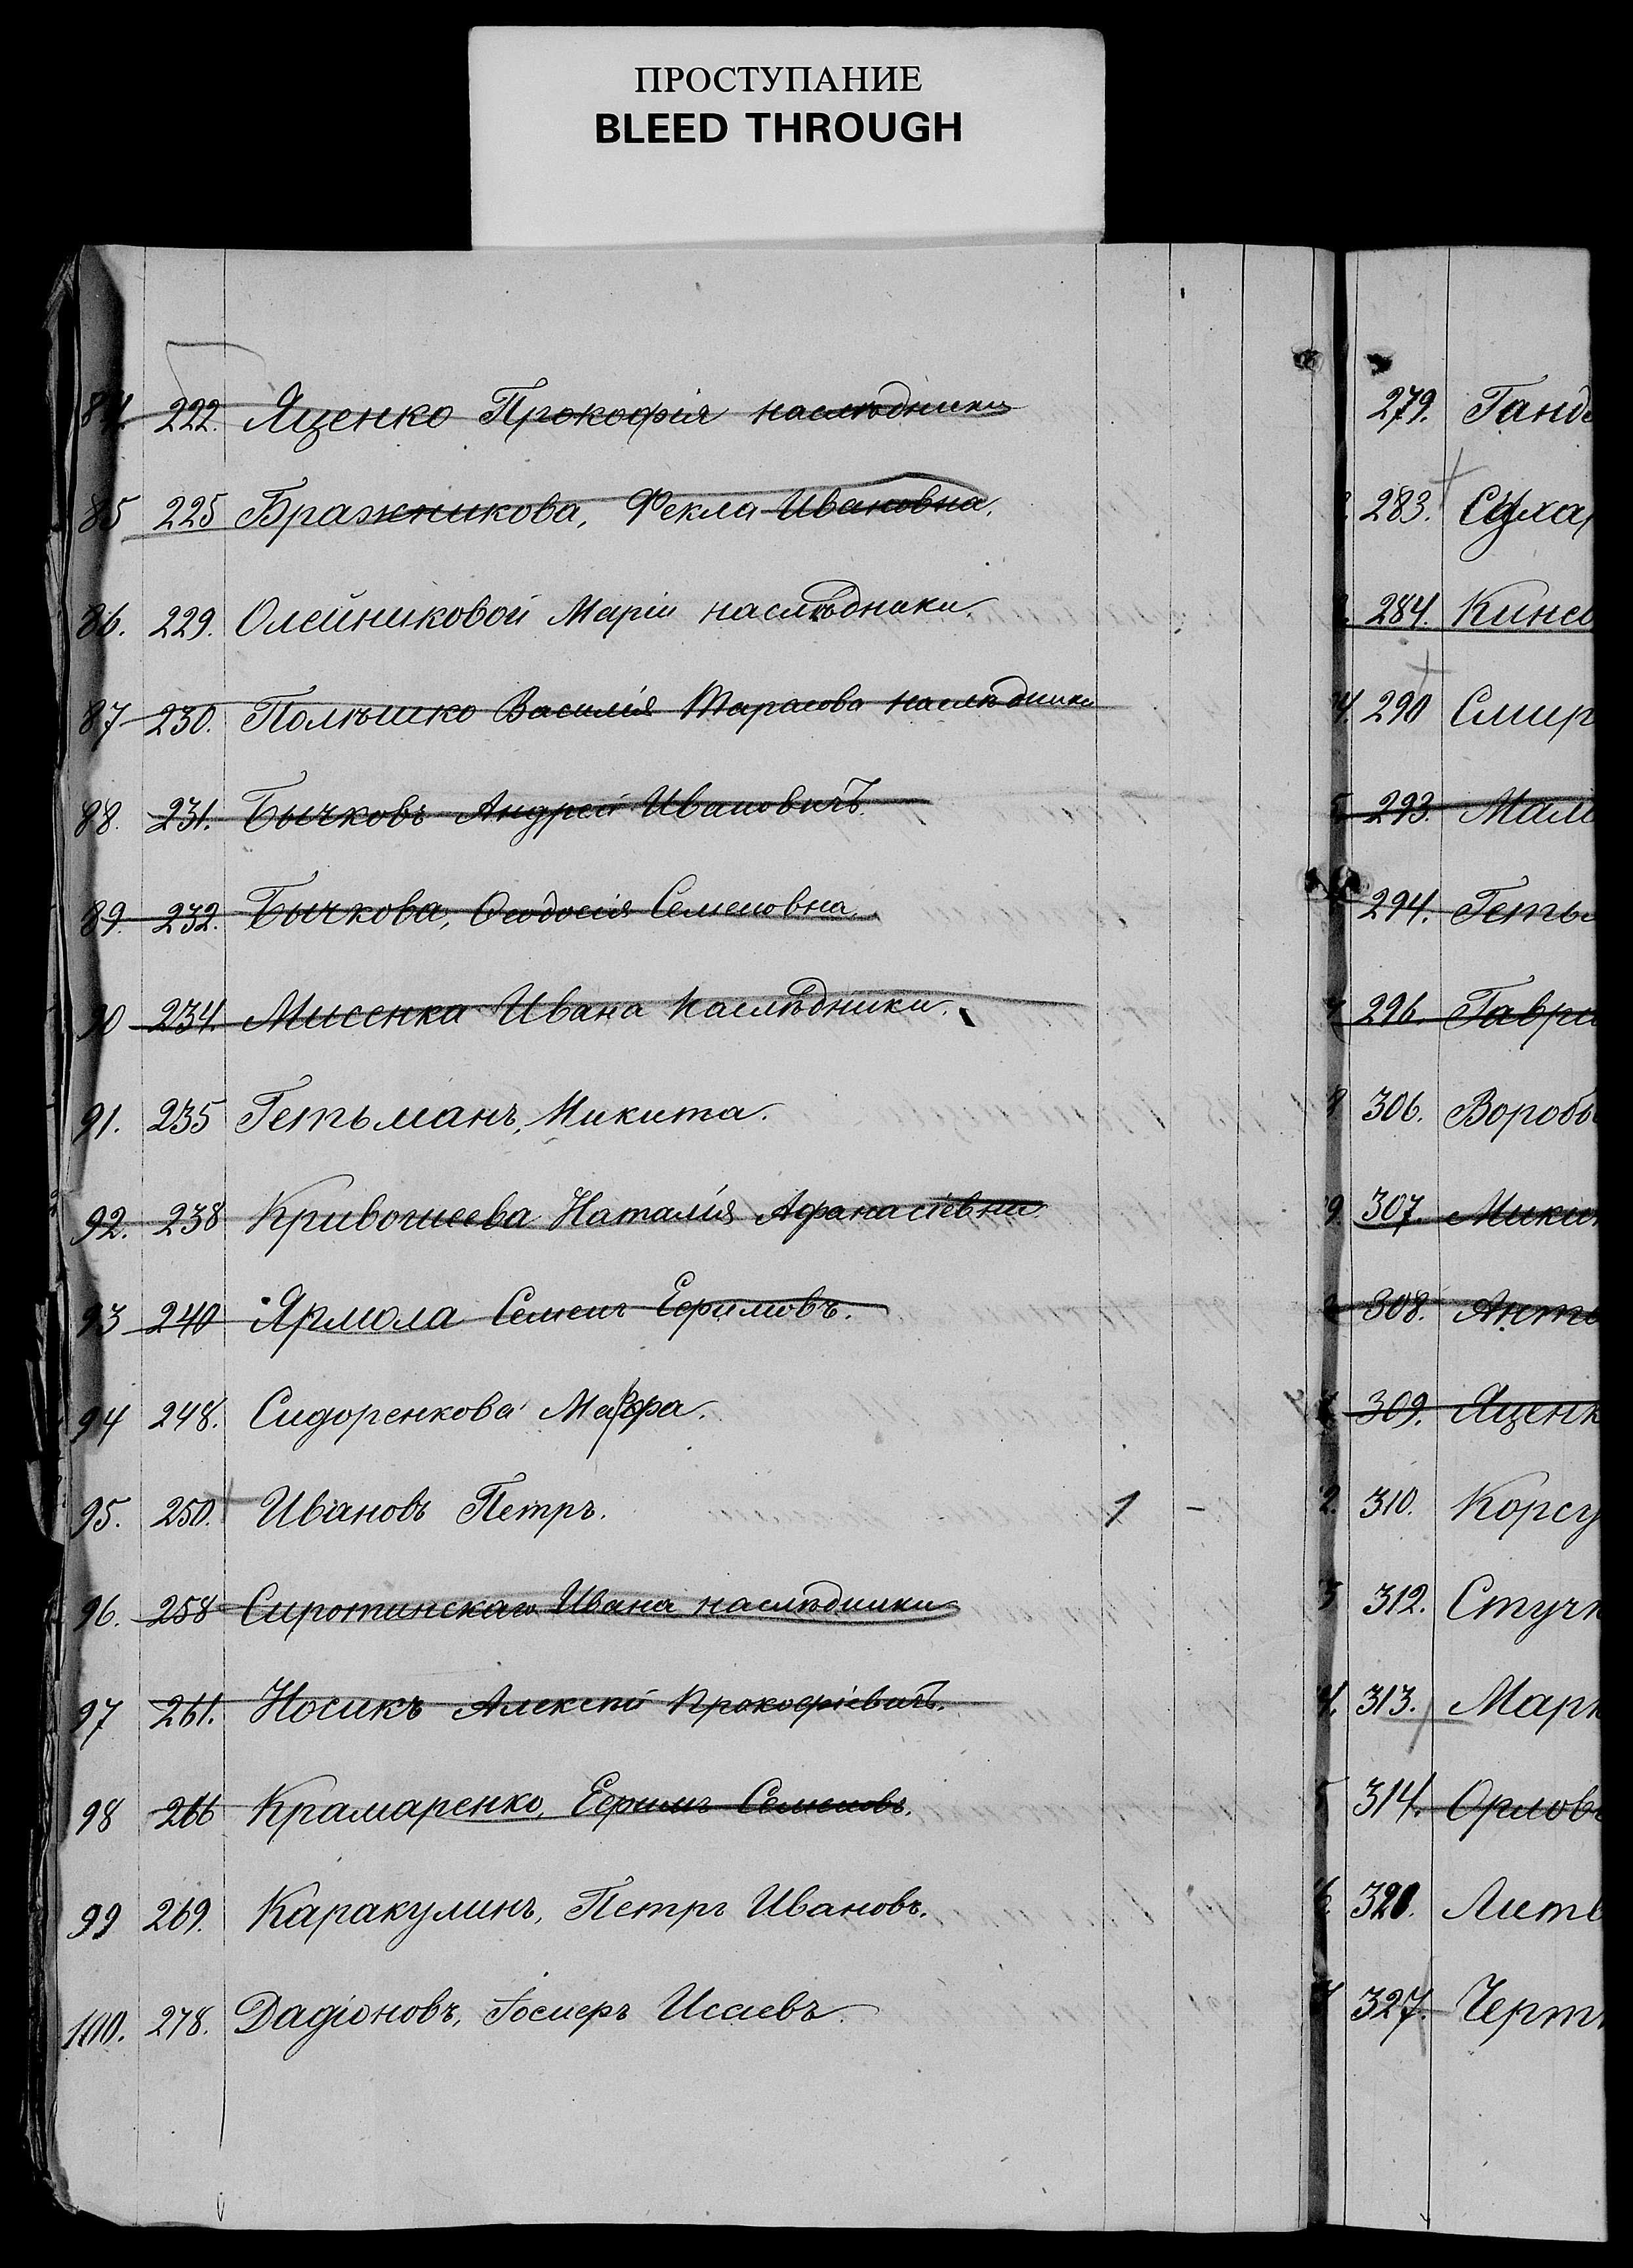 ПРОСТУПАНИЕ
BLEED THROUGH
84. 222. Яценко Прокофія наслѣдники
85 225 Бражникова, Фекла Ивановна.
86. 229. Олейниковой Маріи наслѣдники.
87 230. Полѣшко Василія Тарасова наслѣдники
88. 231. Бычковъ Андрей Ивановичъ.
89. 232. Бычкова, Ѳеодосія Семеновна.
90 234. Мисенка Ивана наслѣдники.
91. 235 Гетьманъ, Микита.
92. 238 Кривошеева Наталія Афанасіевна.
93 240 Ярмола Семенъ Ефимовъ.
94 248. Сидоренкова Мавра.
95. 250. Ивановъ Петръ. 1 –
96. 258 Сиротинскаго Ивана наслѣдники
97 261. Носикъ Алексѣй Прокофіевичъ.
98 266 Крамаренко, Ефимъ Семеновъ.
99 269. Каракулинъ, Петръ Ивановъ.
100. 278. Дадіоновъ, Іосифъ Исаевъ.
279. Ганд
283. Суха
284. Кинс
4. 290 Смир
293. Мал
294. Геть
296. Гаври
8 306. Вороб
9. 307. Мики
308. Ант
309. Яценк
2. 310. Корсу
3 312. Стучк
4. 313. Марк
5 314. Орлов
6. 320. Литв
7 327. Черт